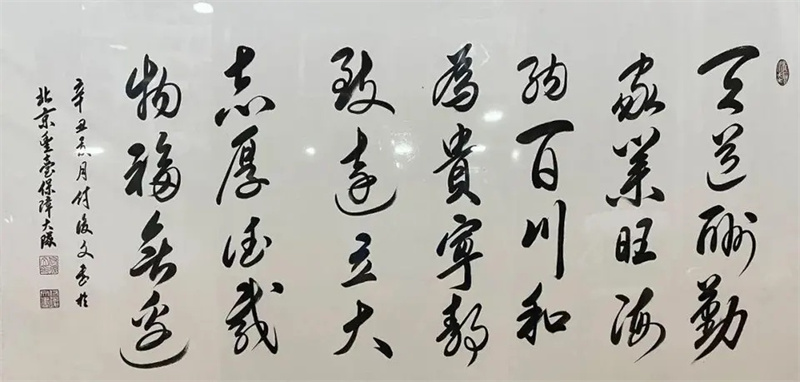 天道酬勤
家業旺海
納百川和
為貴寧静
致遠立大
志厚德載
物福無邊
辛丑月付俊文書於
北京保障大